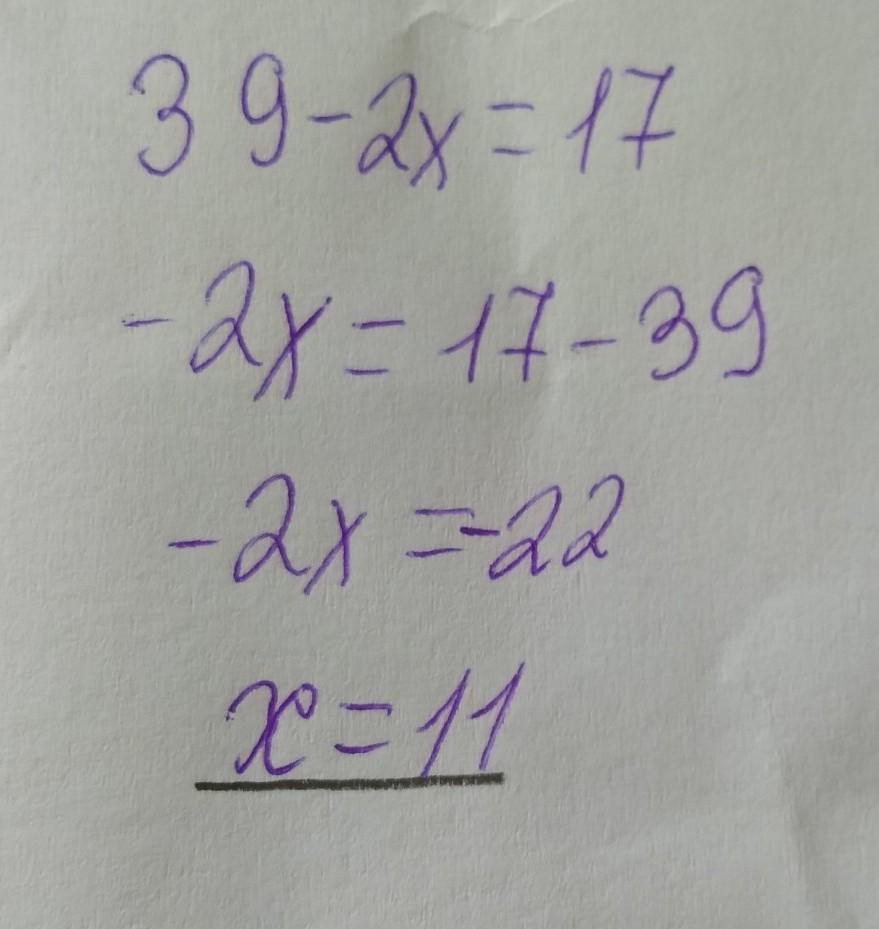 39-2x=17
-2x=17-39
-2x=-22
x=11